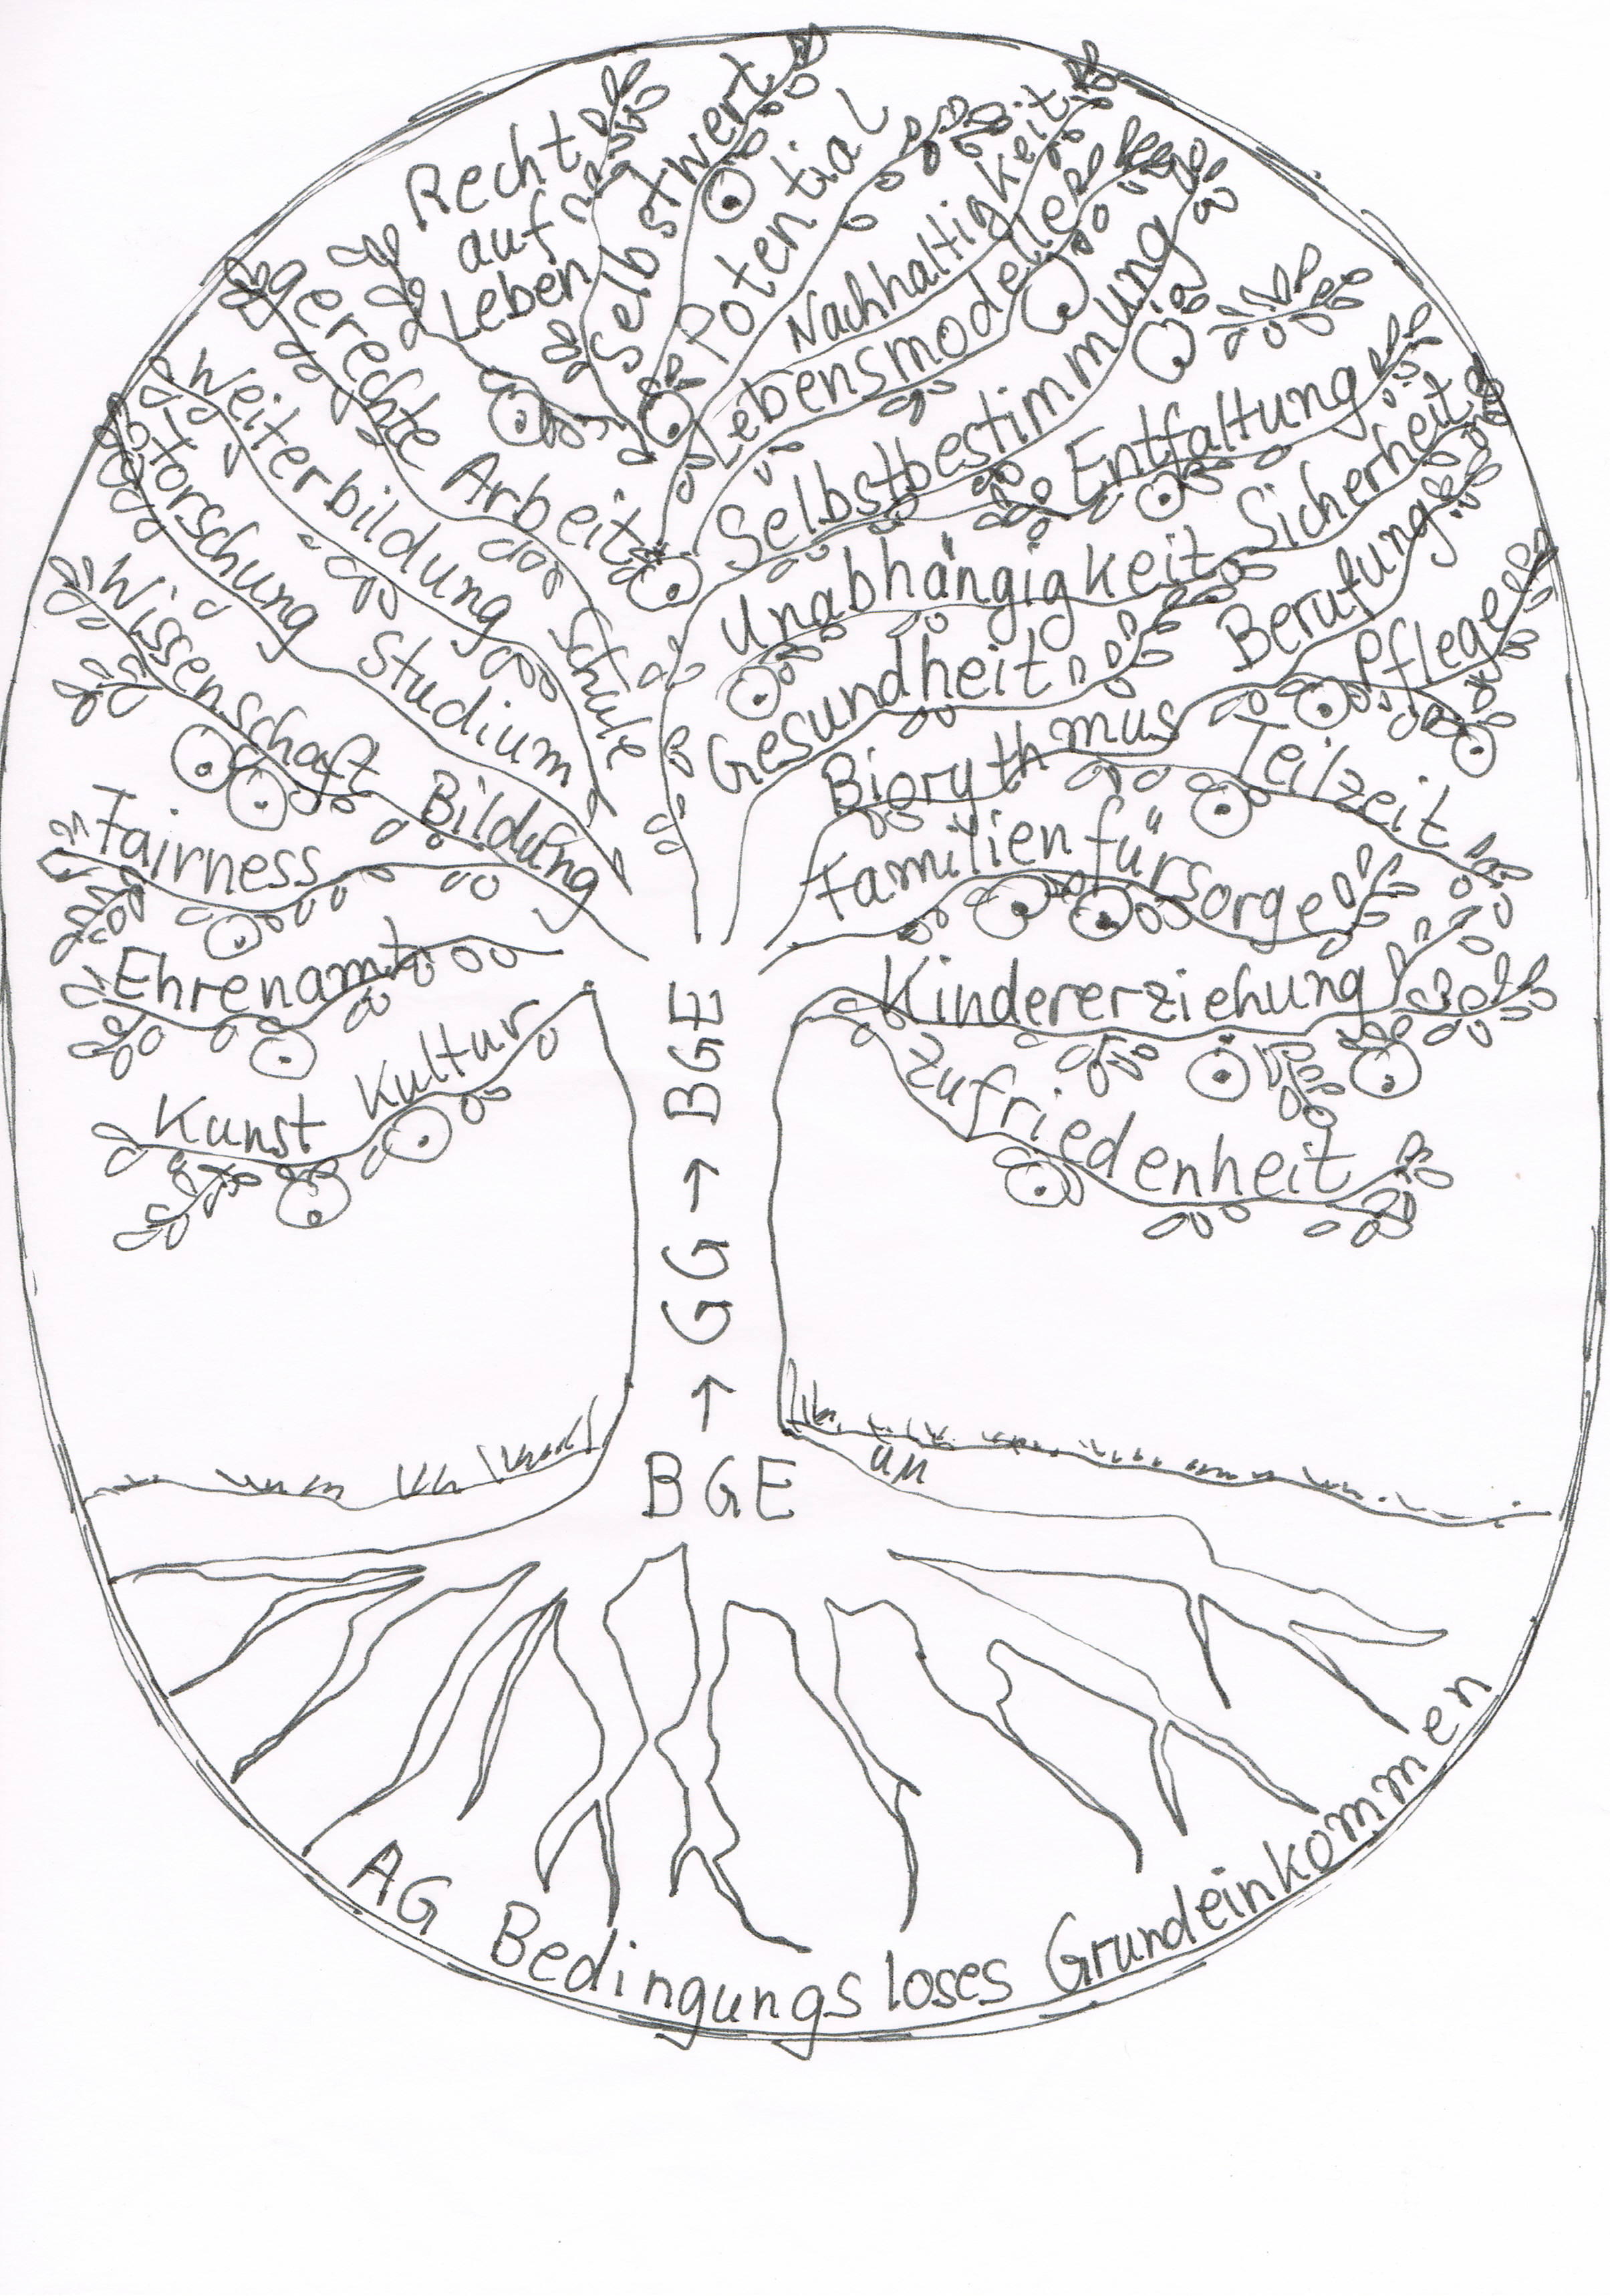 Recht
auf
Leben
Selbstwert
Potential
Nachhaltigkeit
Lebensmodelle
Selbstbestimmung
Entfaltung
Sicherheit
Unabhängigkeit
Berufung
Gesundheit
Pflege
Biorythmus
Teilzeit
Familienfürsorge
Kindererziehung
Zufriedenheit
gerechte Arbeit
Weiterbildung
Schule
Forschung
Studium
Wissenschaft
Bildung
Fairness
Ehrenamt
Kunst Kultur
BGE → GG → BGE
AG Bedingungsloses Grundeinkommen